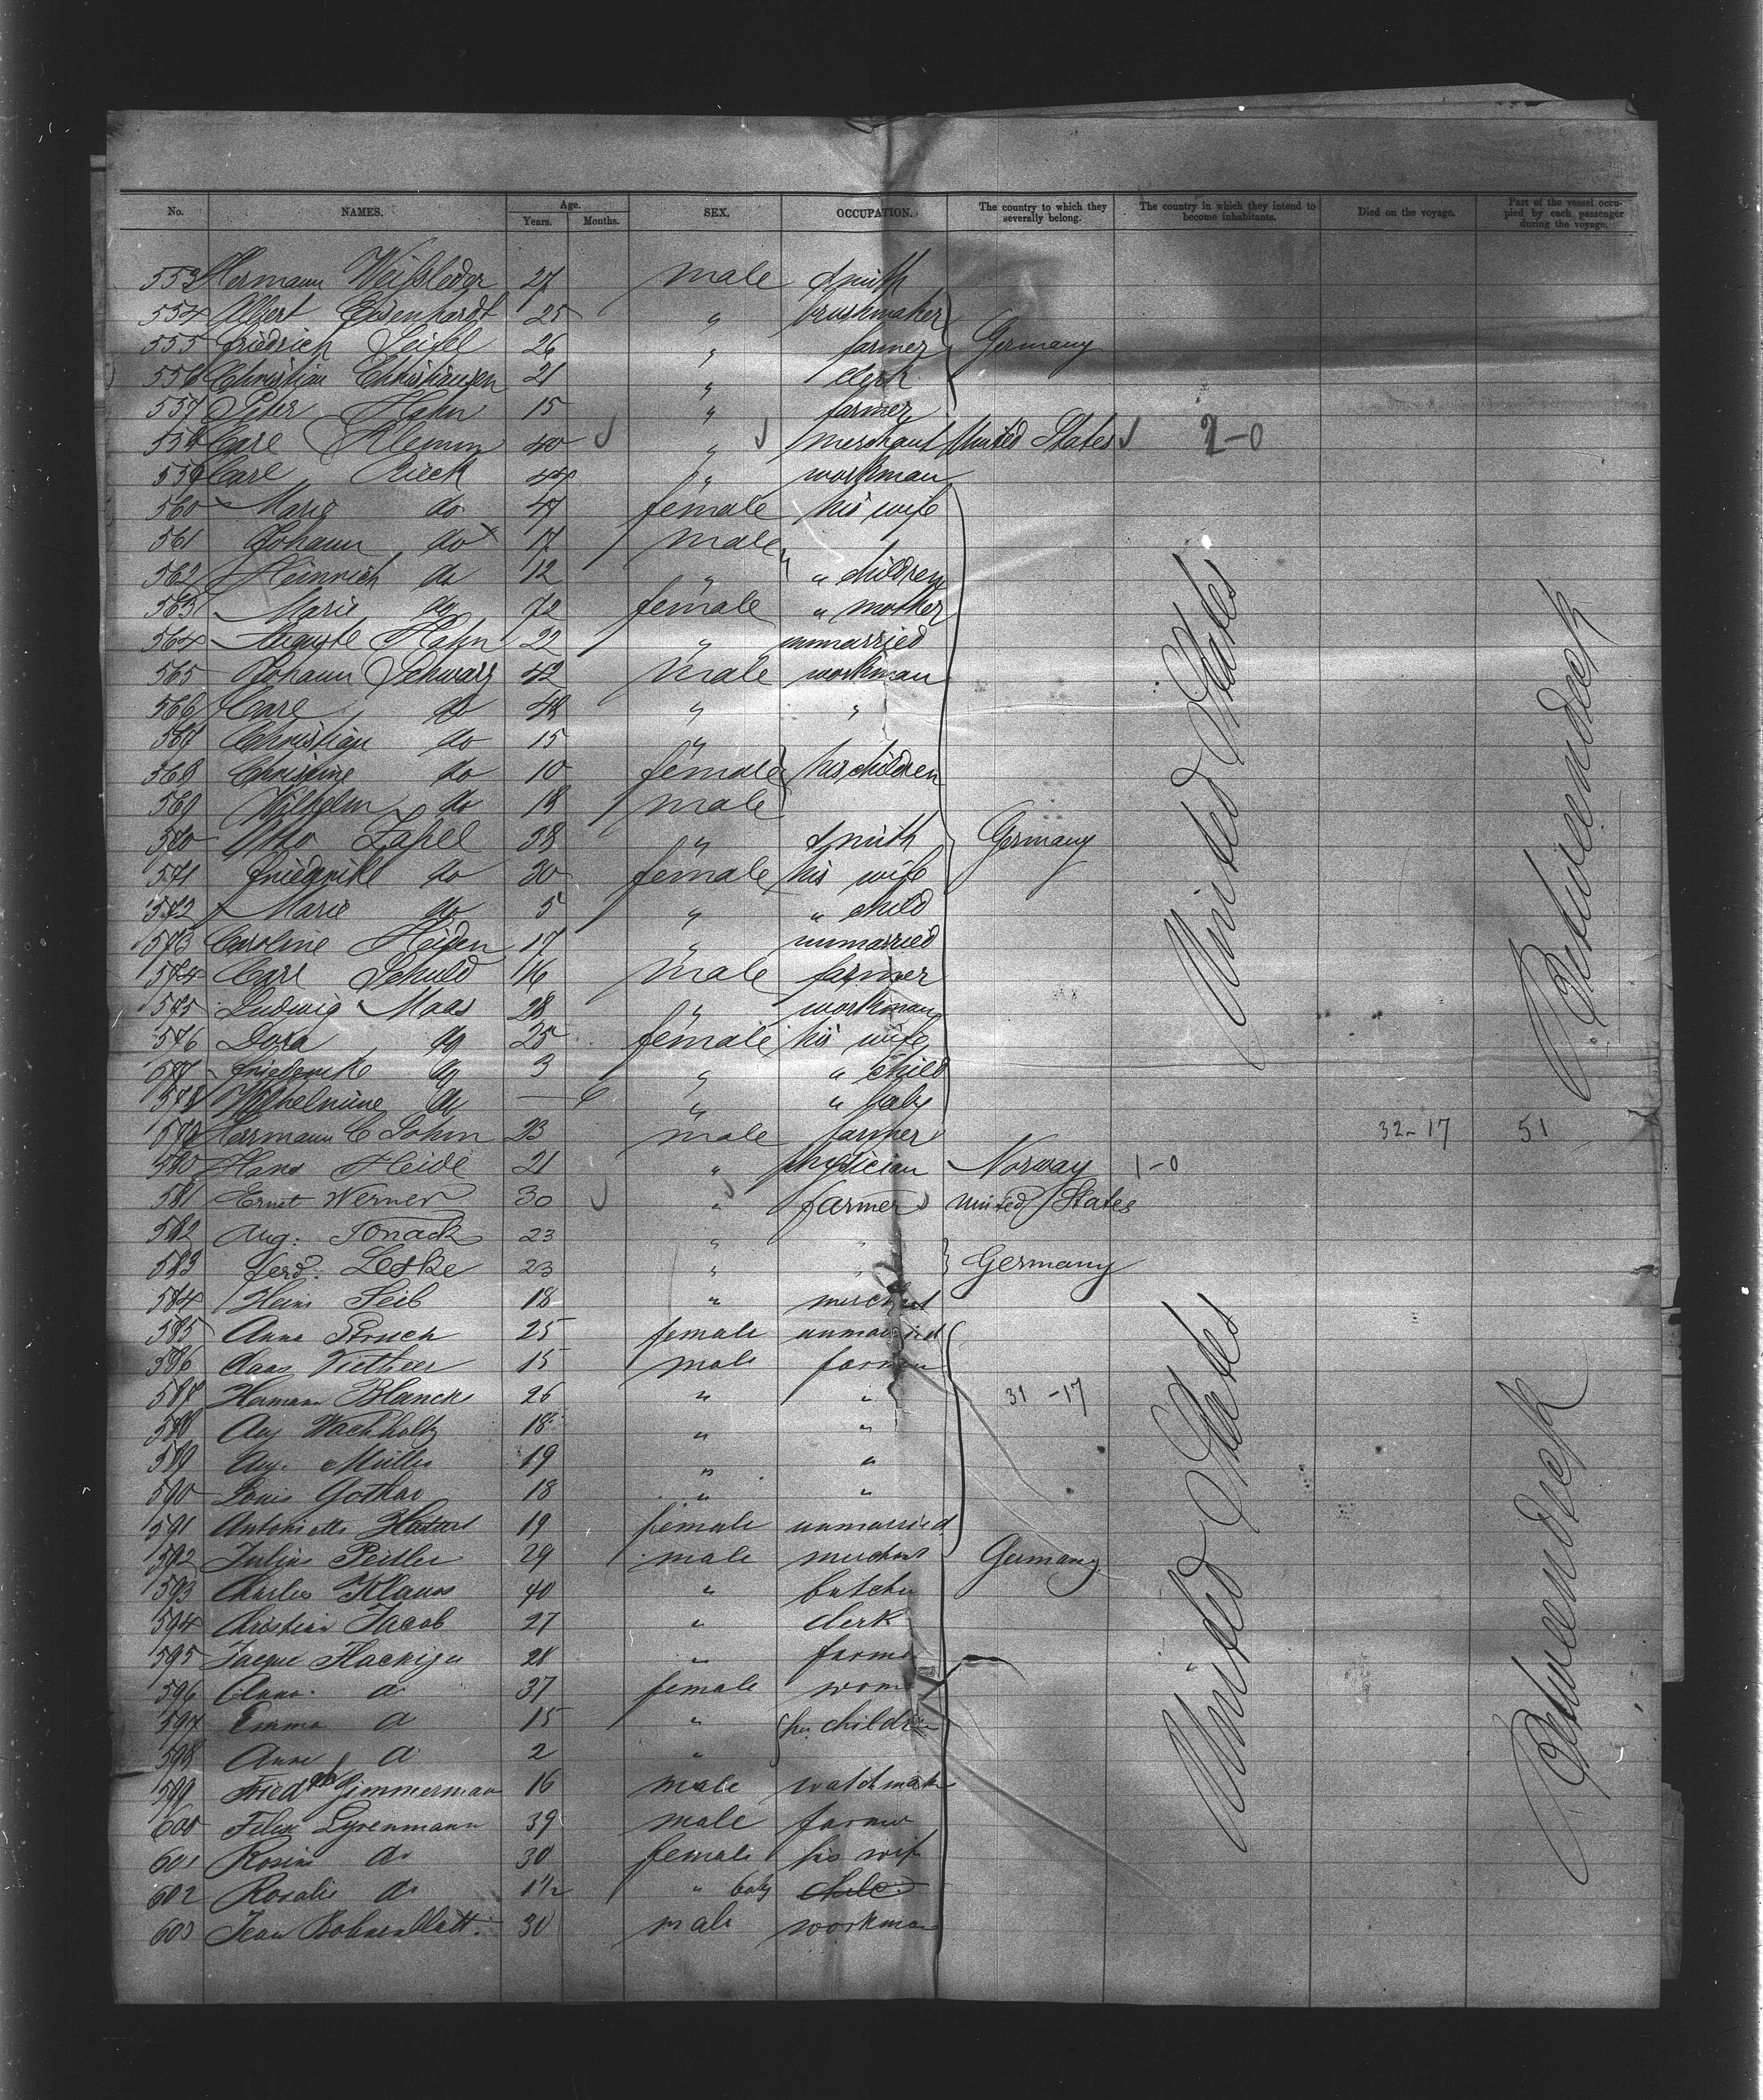 No. NAMES. Age. Years. Months. SEX. OCCUPATION. The country to which they severally belong. The country in which they intend to become inhabitants. Died on the voyage. Part of the vessel occupied by each passenger during the voyage.
553 Hermann Weißleder 27 male smith
554 Albert Eisenhardt 25 " brushmaker
555 Friedrich Seifel 26 " farmer Germany
556 Christian Christiansen 21 " clerk
557 Peter Hahn 15 " farmer
558 Carl Klemm 40 " merchant United States 2-0
559 Carl Rieck 44 " workman
560 Marie do 47 female his wife
561 Johann do 17 male
562 Heinrich do 12 " " children
563 Marie do 72 female " mother
564 Auguste Hahn 22 " unmarried
565 Johann Schwarz 42 male workman
566 Carl do 48 " "
567 Christian do 15 "
568 Christine do 10 female his children
569 Wilhelm do 18 male
570 Otto Zapel 38 " smith Germany
571 Friederike do 30 female his wife
572 Marie do 5 " " child
573 Caroline Heiden 17 " unmarried
574 Carl Schuld 16 male farmer
575 Ludwig Maas 28 " workman
576 Dora do 25 female his wife
577 Friederike do 3 " " child
578 Wilhelmine do — 6 " " baby
579 Hermann C Sohm 23 male farmer 32-17 51
580 Hans Heide 21 " physician Norway 1-0
581 Ernst Werner 30 " farmer United States
582 Aug. Jonack 23 " "
583 Ferd. Leske 23 " " Germany
584 Hein Seib 18 " merchant
585 Anna Struck 25 female unmarried
586 Claas Vietheer 15 male farmer
587 Hermann Blanck 26 " " 31-17
588 Aug Wachholtz 18 " "
589 Aug. Müller 19 " "
590 Louis Gothar 18 " "
591 Antoinette 19 female unmarried
592 Julius Peitler 29 male merchant Germany
593 Charles Klauss 40 " butcher
594 Christian Jacob 27 " clerk
595 28 " farmer
596 Anna do 37 female woman
597 Emma do 15 " her children
598 Anna do 2 "
599 Fried Zimmerman 16 male watchmaker
600 Felix Lyrenmann 39 male farmer
601 Rosine do 30 female his wife
602 Rosalie do 1½ " baby child
603 Jean Bohnenblatt 30 male workman
United States
Betweendeck
United States
Betweendeck